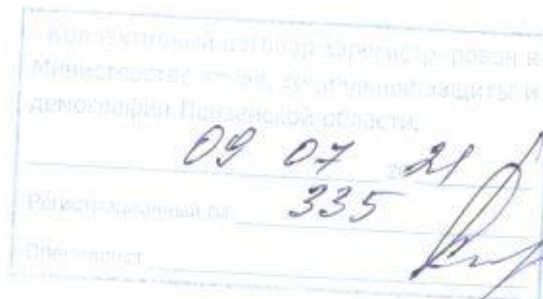 Коллективный договор зарегистрирован в
Министерстве труда, социальной защиты и
демографии Пензенской области.
09 07 2021
Регистрационный № 335
Специалист